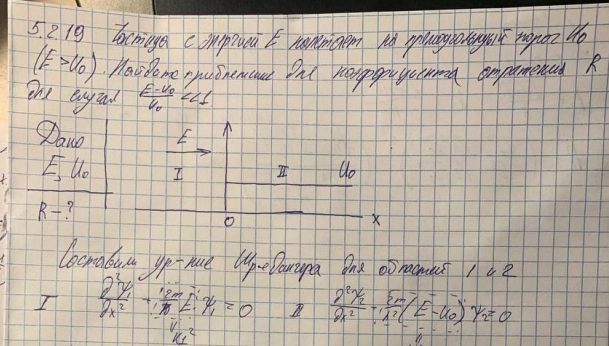 5.2.19 Частица с энергией E налетает на прямоугольный порог U₀
(E > U₀). Найдите приближение для коэффициента отражения R
для случая (E-U₀)/U₀ << 1
Дано
E, U₀
R - ?
E
I II U₀
0 x
Составим ур-ние Шредингера для областей 1 и 2
I ∂²Ψ₁/∂x² + 2m/ħ² E Ψ₁ = 0 II ∂²Ψ₂/∂x² + 2m/ħ² (E-U₀) Ψ₂ = 0
k₁²